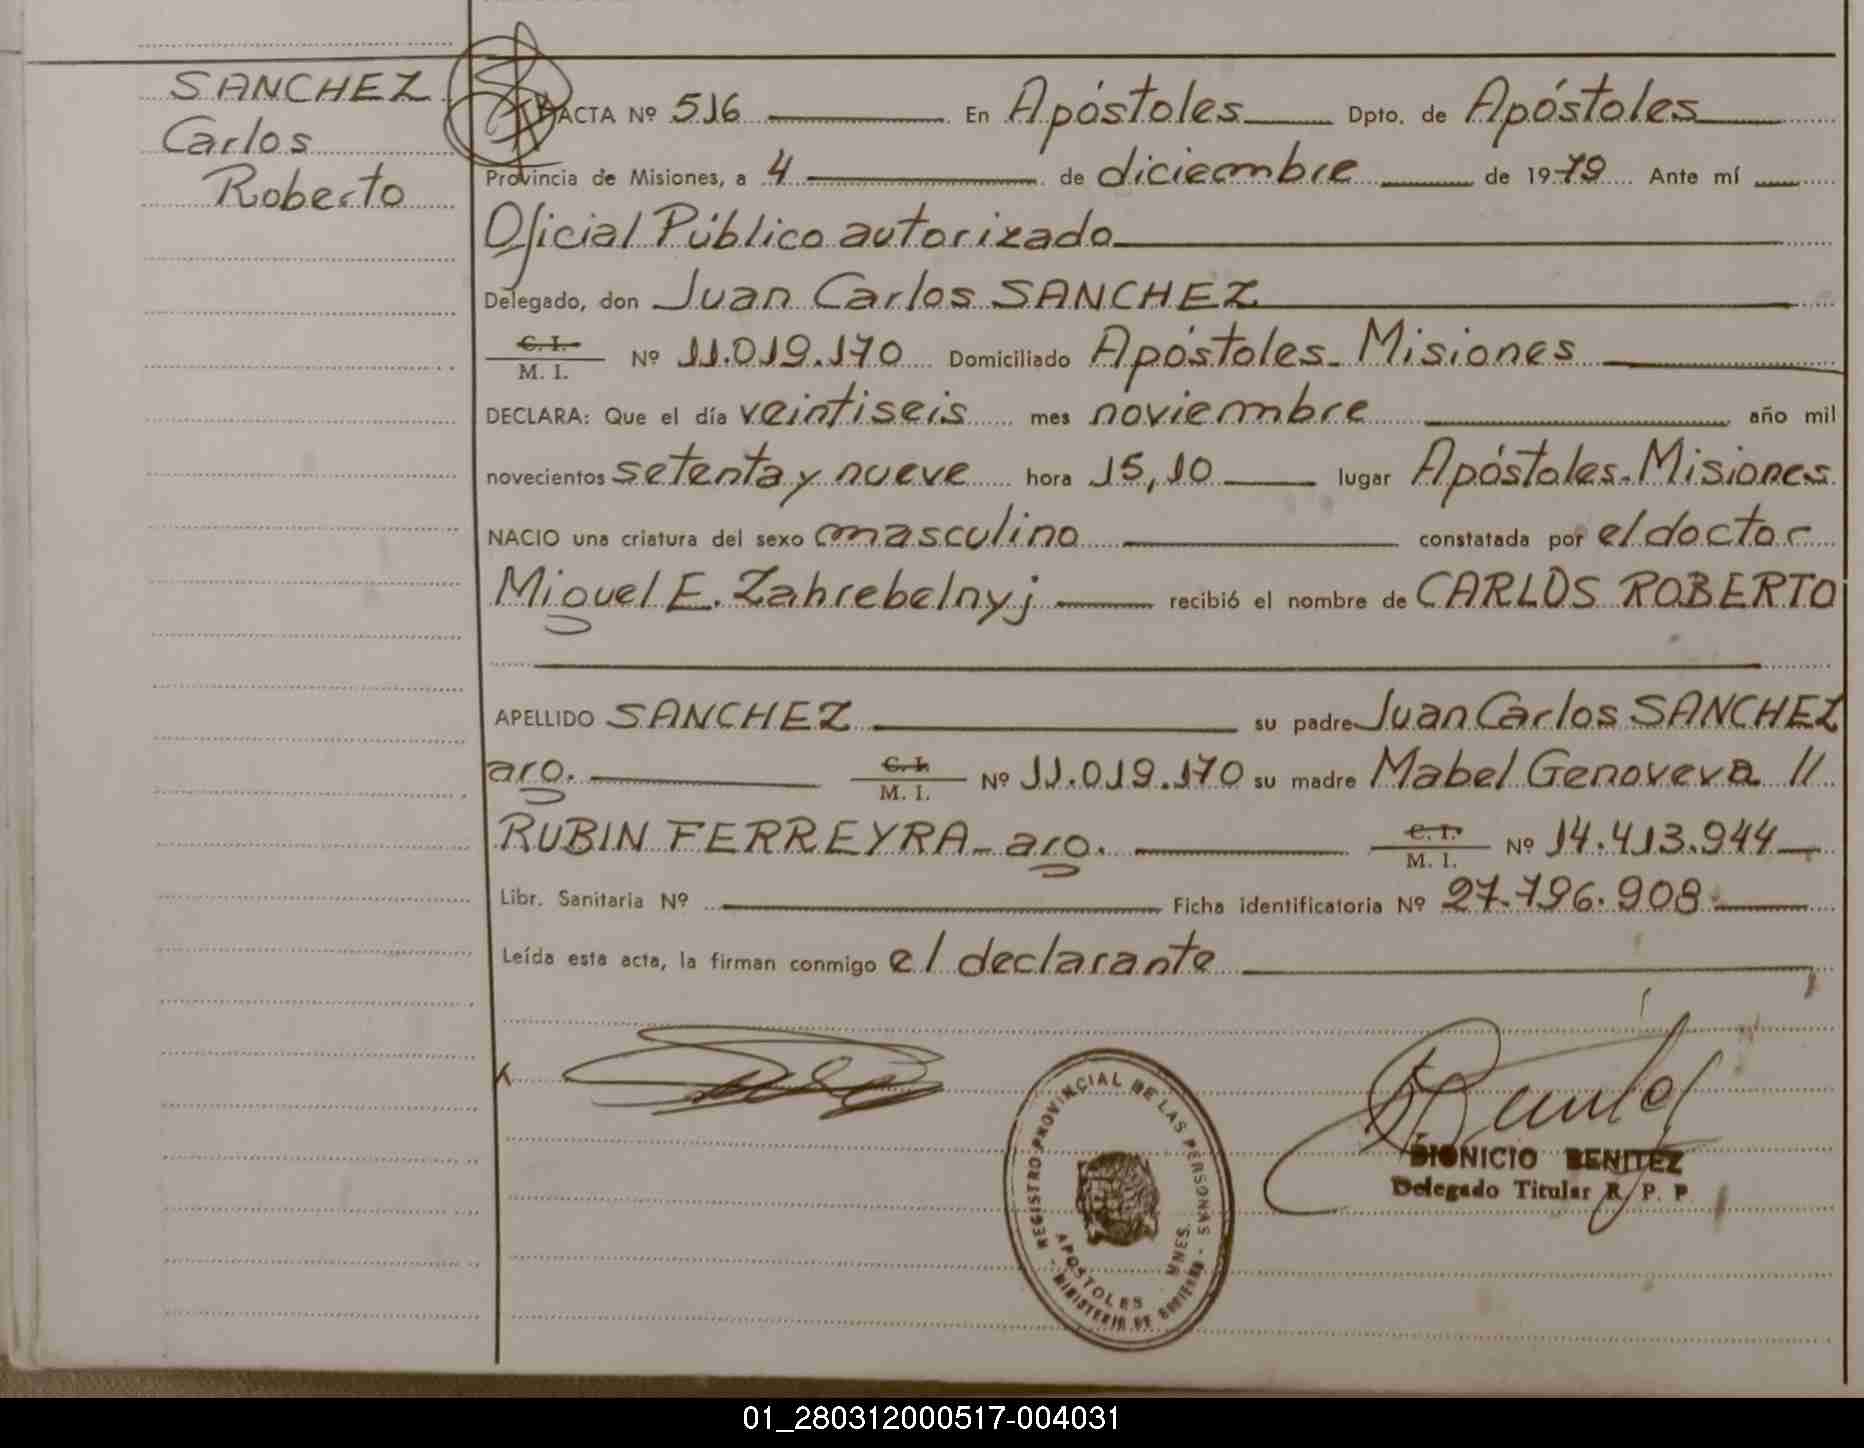 SANCHEZ
Carlos
Roberto
ACTA Nº 516 En Apóstoles Dpto. de Apóstoles
Provincia de Misiones, a 4 de diciembre de 1979 Ante mí
Oficial Público autorizado
Delegado, don Juan Carlos SANCHEZ
C. I.
M. I. Nº 11.019.170 Domiciliado Apóstoles. Misiones
DECLARA: Que el día veintiseis mes noviembre año mil
novecientos setenta y nueve hora 15,10 lugar Apóstoles. Misiones
NACIO una criatura del sexo masculino constatada por el doctor
Miguel E. Zahrebelnyj recibió el nombre de CARLOS ROBERTO
APELLIDO SANCHEZ su padre Juan Carlos SANCHEZ
arg. C. I.
M. I. Nº 11.019.170 su madre Mabel Genoveva //
RUBIN FERREYRA - arg. C. I.
M. I. Nº 14.413.944
Libr. Sanitaria Nº Ficha identificatoria Nº 27.796.908
Leída esta acta, la firman conmigo el declarante
REGISTRO PROVINCIAL DE LAS PERSONAS
APOSTOLES MNES.
MINISTERIO DE GOBIERNO
DIONICIO BENITEZ
Delegado Titular R. P. P.
01_280312000517-004031